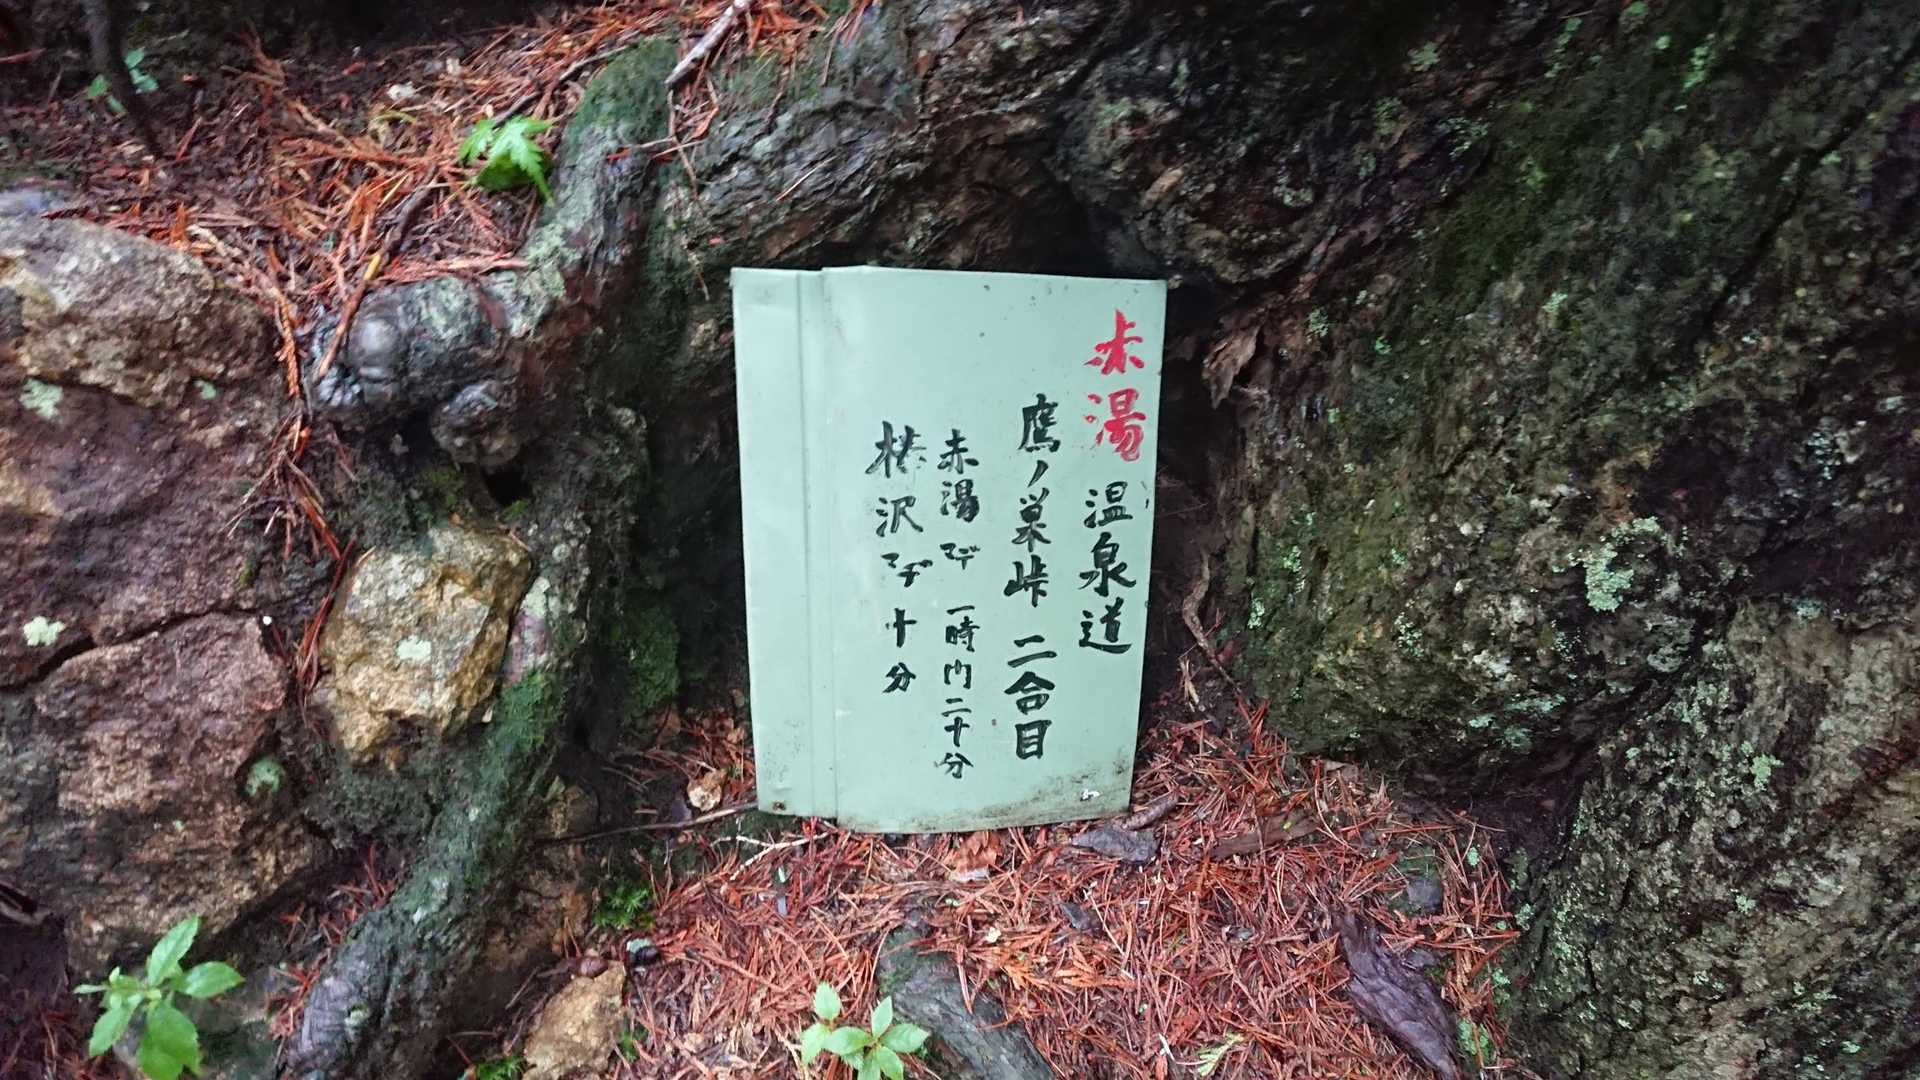 赤湯温泉道
鷹ノ巣峠 二合目
赤湯マデ 一時间二十分
棒沢マデ 十分